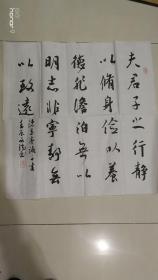 夫君子之行静
以脩身儉以養
德非澹泊無以
明志非寧静無
以致遠